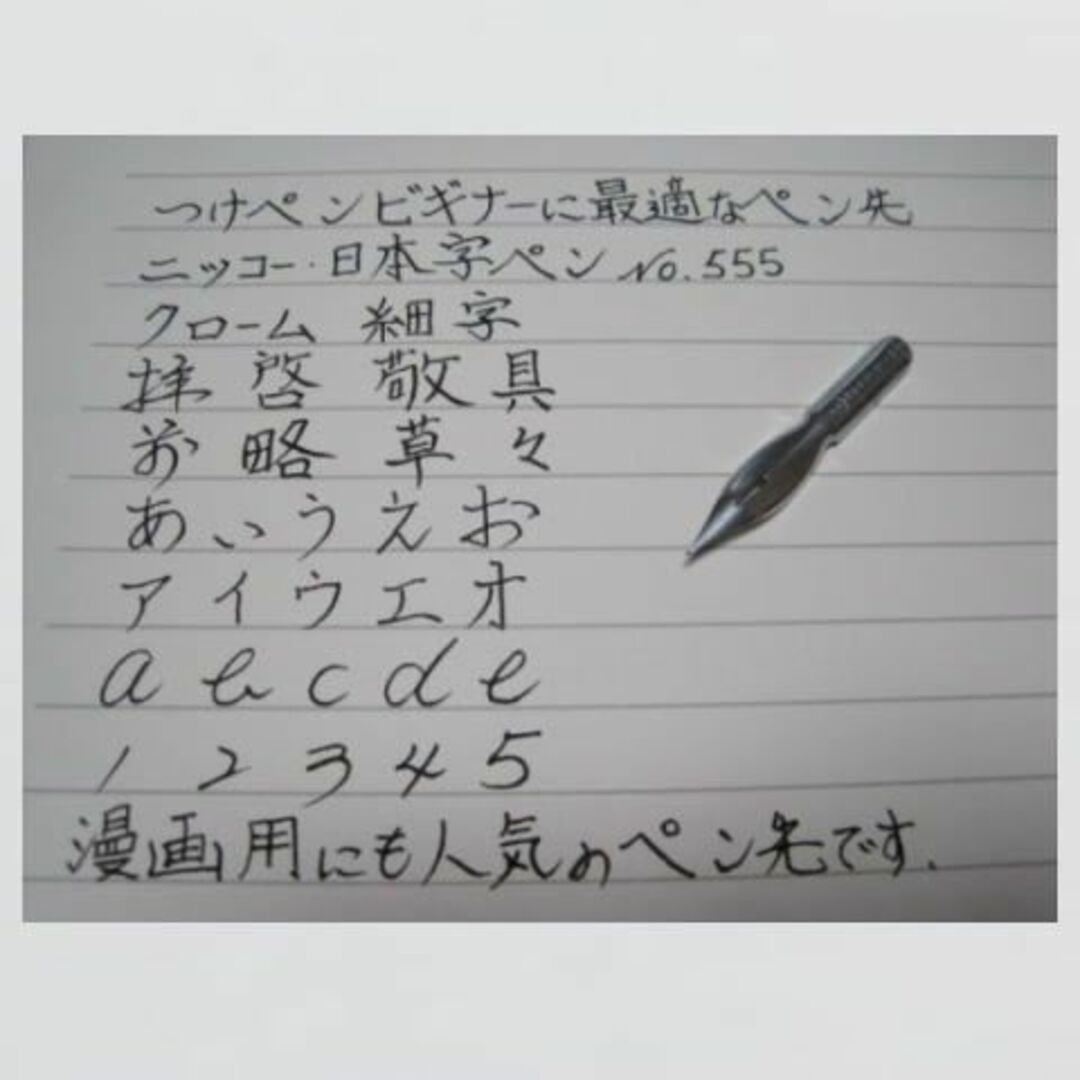 つけペンビギナーに最適なペン先
ニッコー・日本字ペン No.555
クローム 細字
拝啓 敬具
前略 草々
あいうえお
アイウエオ
a b c d e
1 2 3 4 5
漫画用にも人気のペン先です.